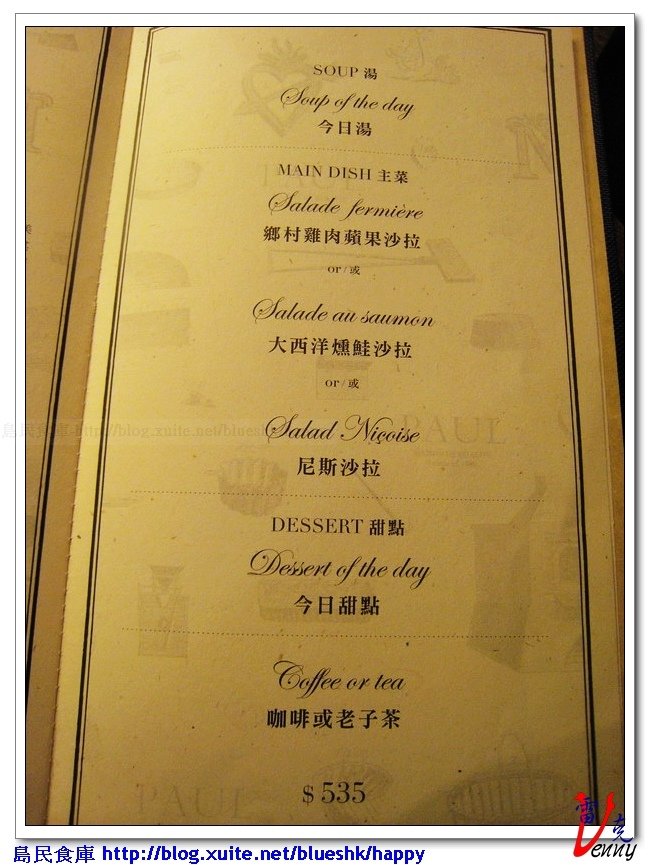 SOUP 湯
Soup of the day
今日湯
MAIN DISH 主菜
Salade fermière
鄉村雞肉蘋果沙拉
or / 或
Salade au saumon
大西洋燻鮭沙拉
or / 或
島民食庫 http://blog.xuite.net/blueshk
PAUL
Salad Niçoise
尼斯沙拉
DESSERT 甜點
Dessert of the day
今日甜點
Coffee or tea
咖啡或老子茶
$ 535
PAUL
雷克
Venny
島民食庫 http://blog.xuite.net/blueshk/happy